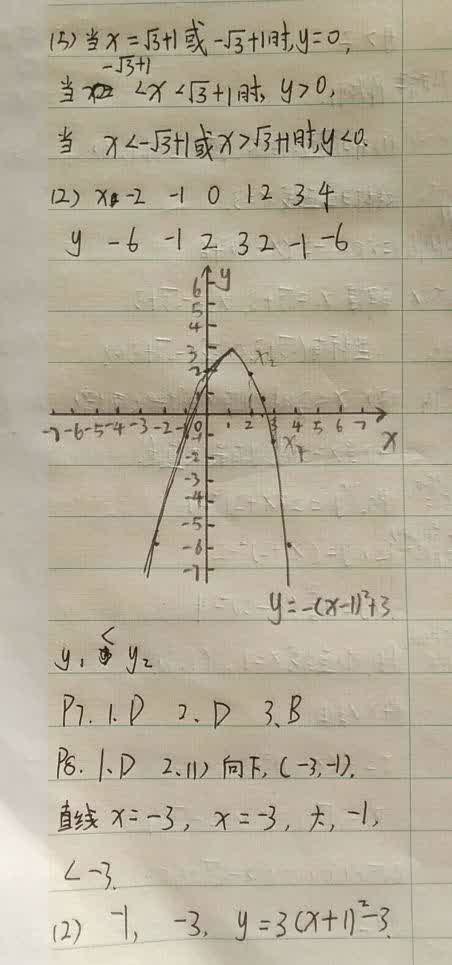 (5) 当 x=√3+1 或 -√3+1时, y=0,
-√3+1
当 <x<√3+1时, y>0,
当 x<-√3+1或x>√3+1时, y<0.
(2) x -2 -1 0 1 2 3 4
y -6 -1 2 3 2 -1 -6
y
6
5
4
3
2
1
-7 -6 -5 -4 -3 -2 -1 0 1 2 3 4 5 6 7 x
-1
-2
-3
-4
-5
-6
-7
y=-(x-1)²+3
y₁ < y₂
P7. 1. D 2. D 3. B
P8. 1. D 2. (1) 向下, (-3,-1),
直线 x=-3, x=-3, 大, -1,
<-3.
(2) -1, -3, y=3(x+1)²-3